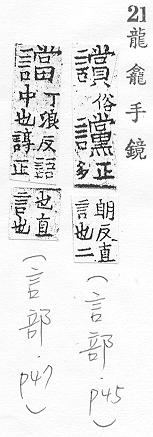 21 龍龕手鏡
俗讜正多朗反直言也二
(言部.p45)
譡丁浪反語中也正也直言也
(言部.p47)